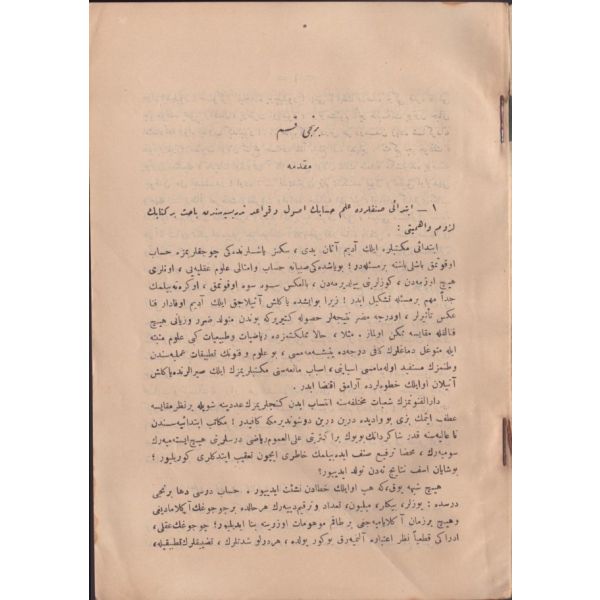 برنجی قسم
مقدمه
١ ــ ابتدائی صنفلرده علم حسابك اصول و قواعد تدریسیه‌سندن باحث بر كتابك
لزوم و اهمیتی :
ابتدائی مكتبلره ایلك آدیم آتان یدی ، سكز یاشلرنده‌كی چوجقلریمزه حساب
اوقوتمق باشلی باشنه بر مسئله‌در ! بو یاشده‌كی صبیانه حساب و امثالی علوم عقلیه‌یی ، اونلری
هیچ اوزمه‌دن ، كوزلرینی ییلدیرمه‌دن ، بالعكس سوه سوه اوقوتمق ، اوكرته‌بیلمك
جداً مهم بر مسئله تشكیل ایدر ! زیرا بو ایشده یاكلش آتیلاجق ایلك آدیم اوقادار فنا
عكس تأثیرلر ، اودرجه مضر نتیجه‌لر حصوله كتیریركه بوندن متولد ضرر و زیانی هیچ
فنالقله مقایسه ممكن اولماز . مثلا ، حالا مملكتمزده ریاضیات و طبیعیات كبی علوم مثبته
ایله متوغل دماغلرك كافی درجه‌ده یتیشه‌مه‌مسی ، بو علوم و فنونك تطبیقات عملیه‌سندن
وطنمزك مستفید اوله‌ماماسی اسبابنی ، اسباب مانعه‌سنی مكتبلریمزك ایلك صیرالرنده یاكلش
آتیلان او ایلك خطوه‌لرده آرامق اقتضا ایدر .
دارالفنونمزك شعبات مختلفه‌سنه انتساب ایدن كنجلریمزك عددینه شویله بر نظر مقایسه
عطف ایتمك بزی بو وادیده درین درین دوشوندیرمكه كافیدر ! مكاتب ابتدائیه‌سندن
تا عالیه‌سنه قدر شاكردانك بویوك بر اكثریتی علی العموم ریاضی درسلرینی هیچ ایسته‌میه‌رك
سومیه‌رك ، محضا ترفیع صنف ایده‌بیلمك خاطری ایچون تعقیب ایتدكلری كوریلیور !
بو شایان اسف نتایج نه‌دن تولد ایدییور ؟
هیچ شبهه یوق‌كه هب او ایلك خطادن نشئت ایدییور . حساب درسی دها برنجی
درسده : یوزلر ، بیكلر ، میلیون ، تعداد و ترقیم دییه‌رك هر حالده بر چوجوغك آكلامادیغی
و هیچ بر زمان آكلایامیه‌جغی بر طاقم موهومات اوزرینه بنا ایدیلیور ! چوجوغك عقلی ،
ادراكی قطعیاً نظر اعتباره آلنمیه‌رق بو كور یولده ، هر درلو شدتلرك ، تضییقلرك تطبیقیله ،